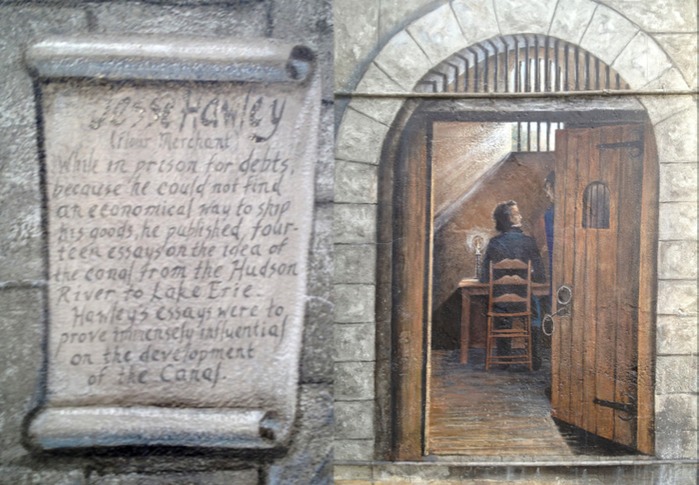 Jesse Hawley
(Flour Merchant)
While in prison for debts,
because he could not find
an economical way to ship
his goods, he published, four-
teen essays on the idea of
the canal from the Hudson
River to Lake Erie.
Hawley's essays were to
prove immensely influential
on the development
of the Canal.